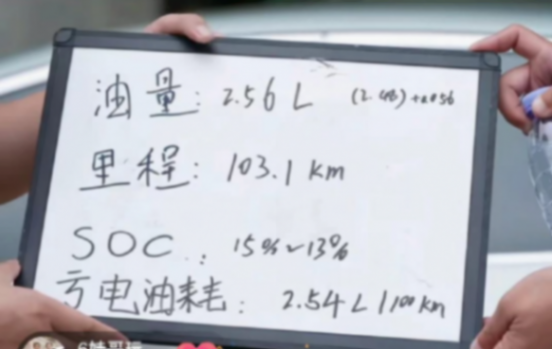 油量: 2.56 L (2.48)+0.056
里程: 103.1 km
SOC: 15%~13%
亏电油耗: 2.54 L/100km
6妹哥玩